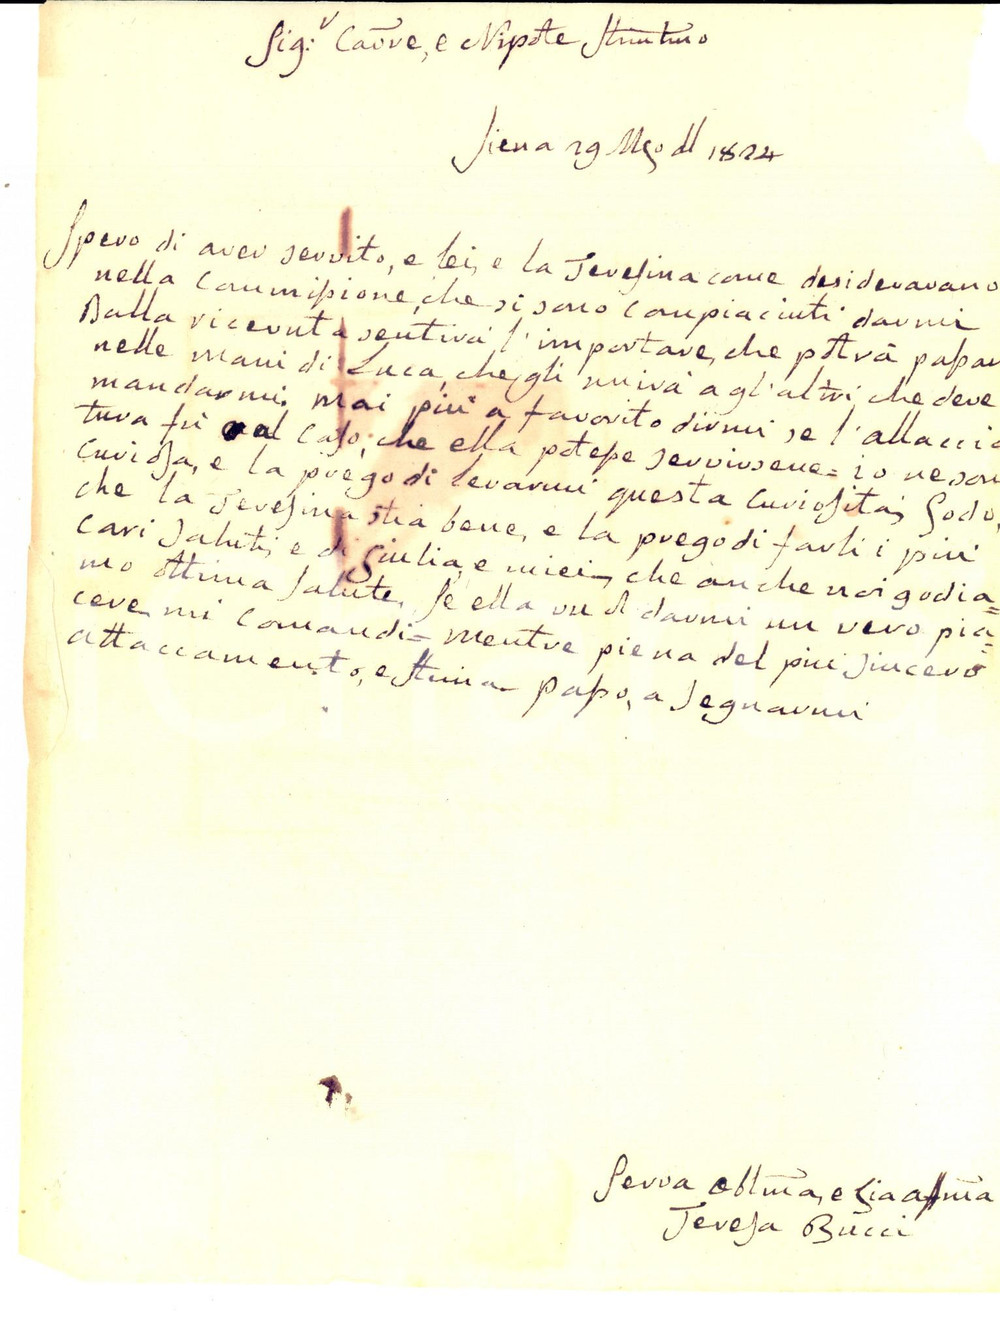 Sig:r Caõre, e Nipote Stimtmo
Siena 29 Mgo dl 1824
Spero di aver servito, e lei, e la Teresina come desideravano
nella Commissione, che si sono compiaciuti darmi
Dalla ricevuta sentirà l'importare, che potrà passar
nelle mani di Luca, che gli unirà agl'altri che deve
mandarmi. Mai più a favorito dirmi se l'allaccia
tura fù al caso, che ella potesse servirsene = io ne son
curiosa, e la prego di levarmi questa curiosità, Godo,
che la Teresina stia bene, e la prego di farli i più
cari saluti, e di Giulia, e miei, che anche noi godia=
mo ottima salute, Se ella vuol darmi un vero pia=
cere mi comandi = mentre piena del più sincero
attaccamento, e stima passo, a segnarmi
Serva obblma, e Zia affma
Teresa Bucci